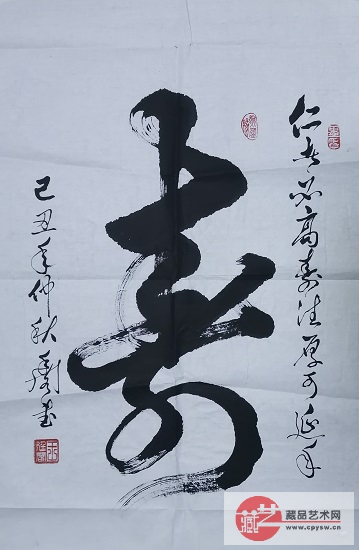 仁者必高寿德厚可延年
寿
己丑年仲秋
书
藏艺
藏品艺术网
www.cpysw.cn